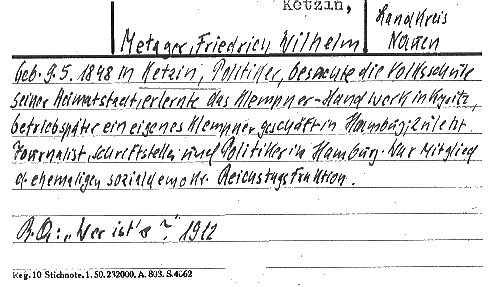 Ketzin,
Landkreis
Nauen
Metzger, Friedrich, Wilhelm
geb. 9.5. 1848 in Ketzin, Politiker, besuchte die Volksschule
seiner Heimatstadt, erlernte das Klempner-Handwerk in Kyritz,
betrieb später ein eigenes Klempnergeschäft in Hamburg; zuletzt
Journalist, Schriftsteller und Politiker in Hamburg. War Mitglied
d. ehemaligen sozialdemokr. Reichstagsfraktion.
"Wer ist's?" 1912
Reg. 10 Stichnote. 1. 50. 232000. A. 803. S. 4662